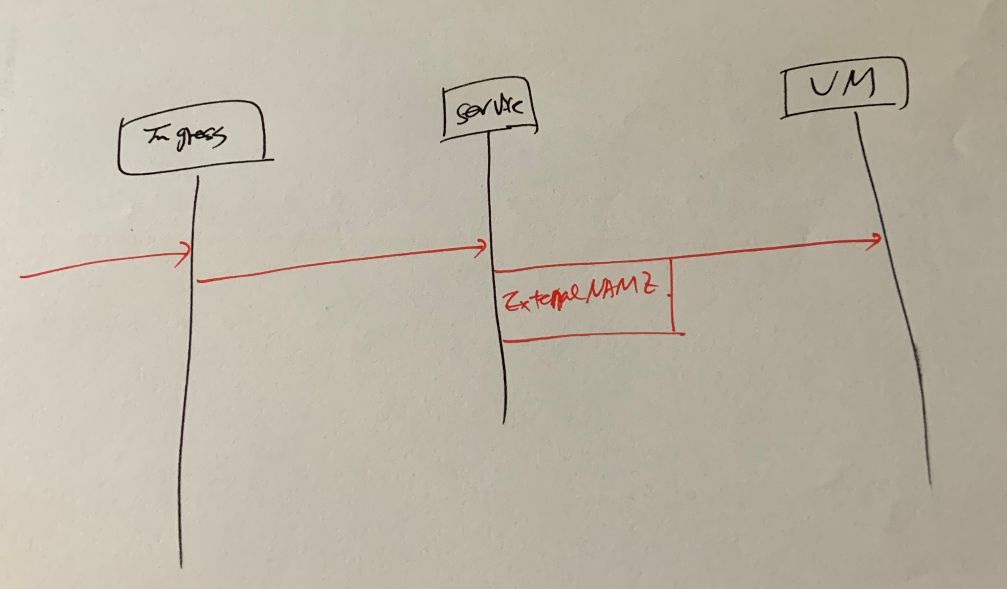 Ingress
service
VM
ExternalNAME